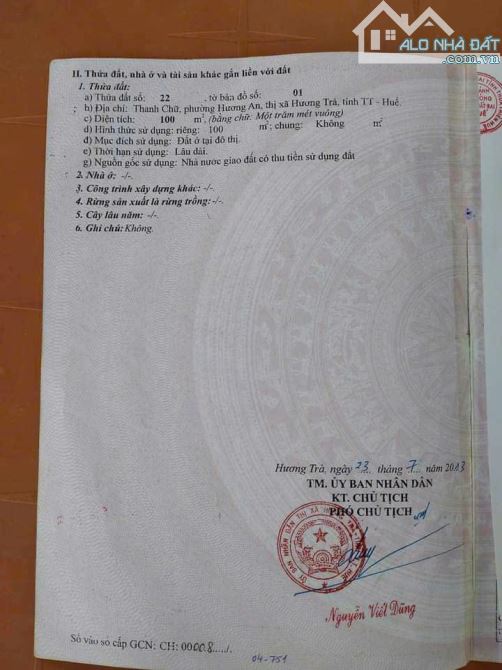 ALO NHÀ ĐẤT
II. Thửa đất, nhà ở và tài sản khác gắn liền với đất
1. Thửa đất:
a) Thửa đất số: 22 , tờ bản đồ số: 01
b) Địa chỉ: Thanh Chữ, phường Hương An, thị xã Hương Trà, tỉnh TT - Huế.
c) Diện tích: 100 m², (bằng chữ: Một trăm mét vuông)
d) Hình thức sử dụng: riêng: 100 m²; chung: Không m²
đ) Mục đích sử dụng: Đất ở tại đô thị.
e) Thời hạn sử dụng: Lâu dài.
g) Nguồn gốc sử dụng: Nhà nước giao đất có thu tiền sử dụng đất
2. Nhà ở: -/-
3. Công trình xây dựng khác: -/-
4. Rừng sản xuất là rừng trồng: -/-
5. Cây lâu năm: -/-
6. Ghi chú: Không.
Hương Trà, ngày 23 tháng 7 năm 2013
TM. ỦY BAN NHÂN DÂN
KT. CHỦ TỊCH
PHÓ CHỦ TỊCH
Nguyễn Viết Dũng
Số vào sổ cấp GCN: CH: 00008...../.
04-751